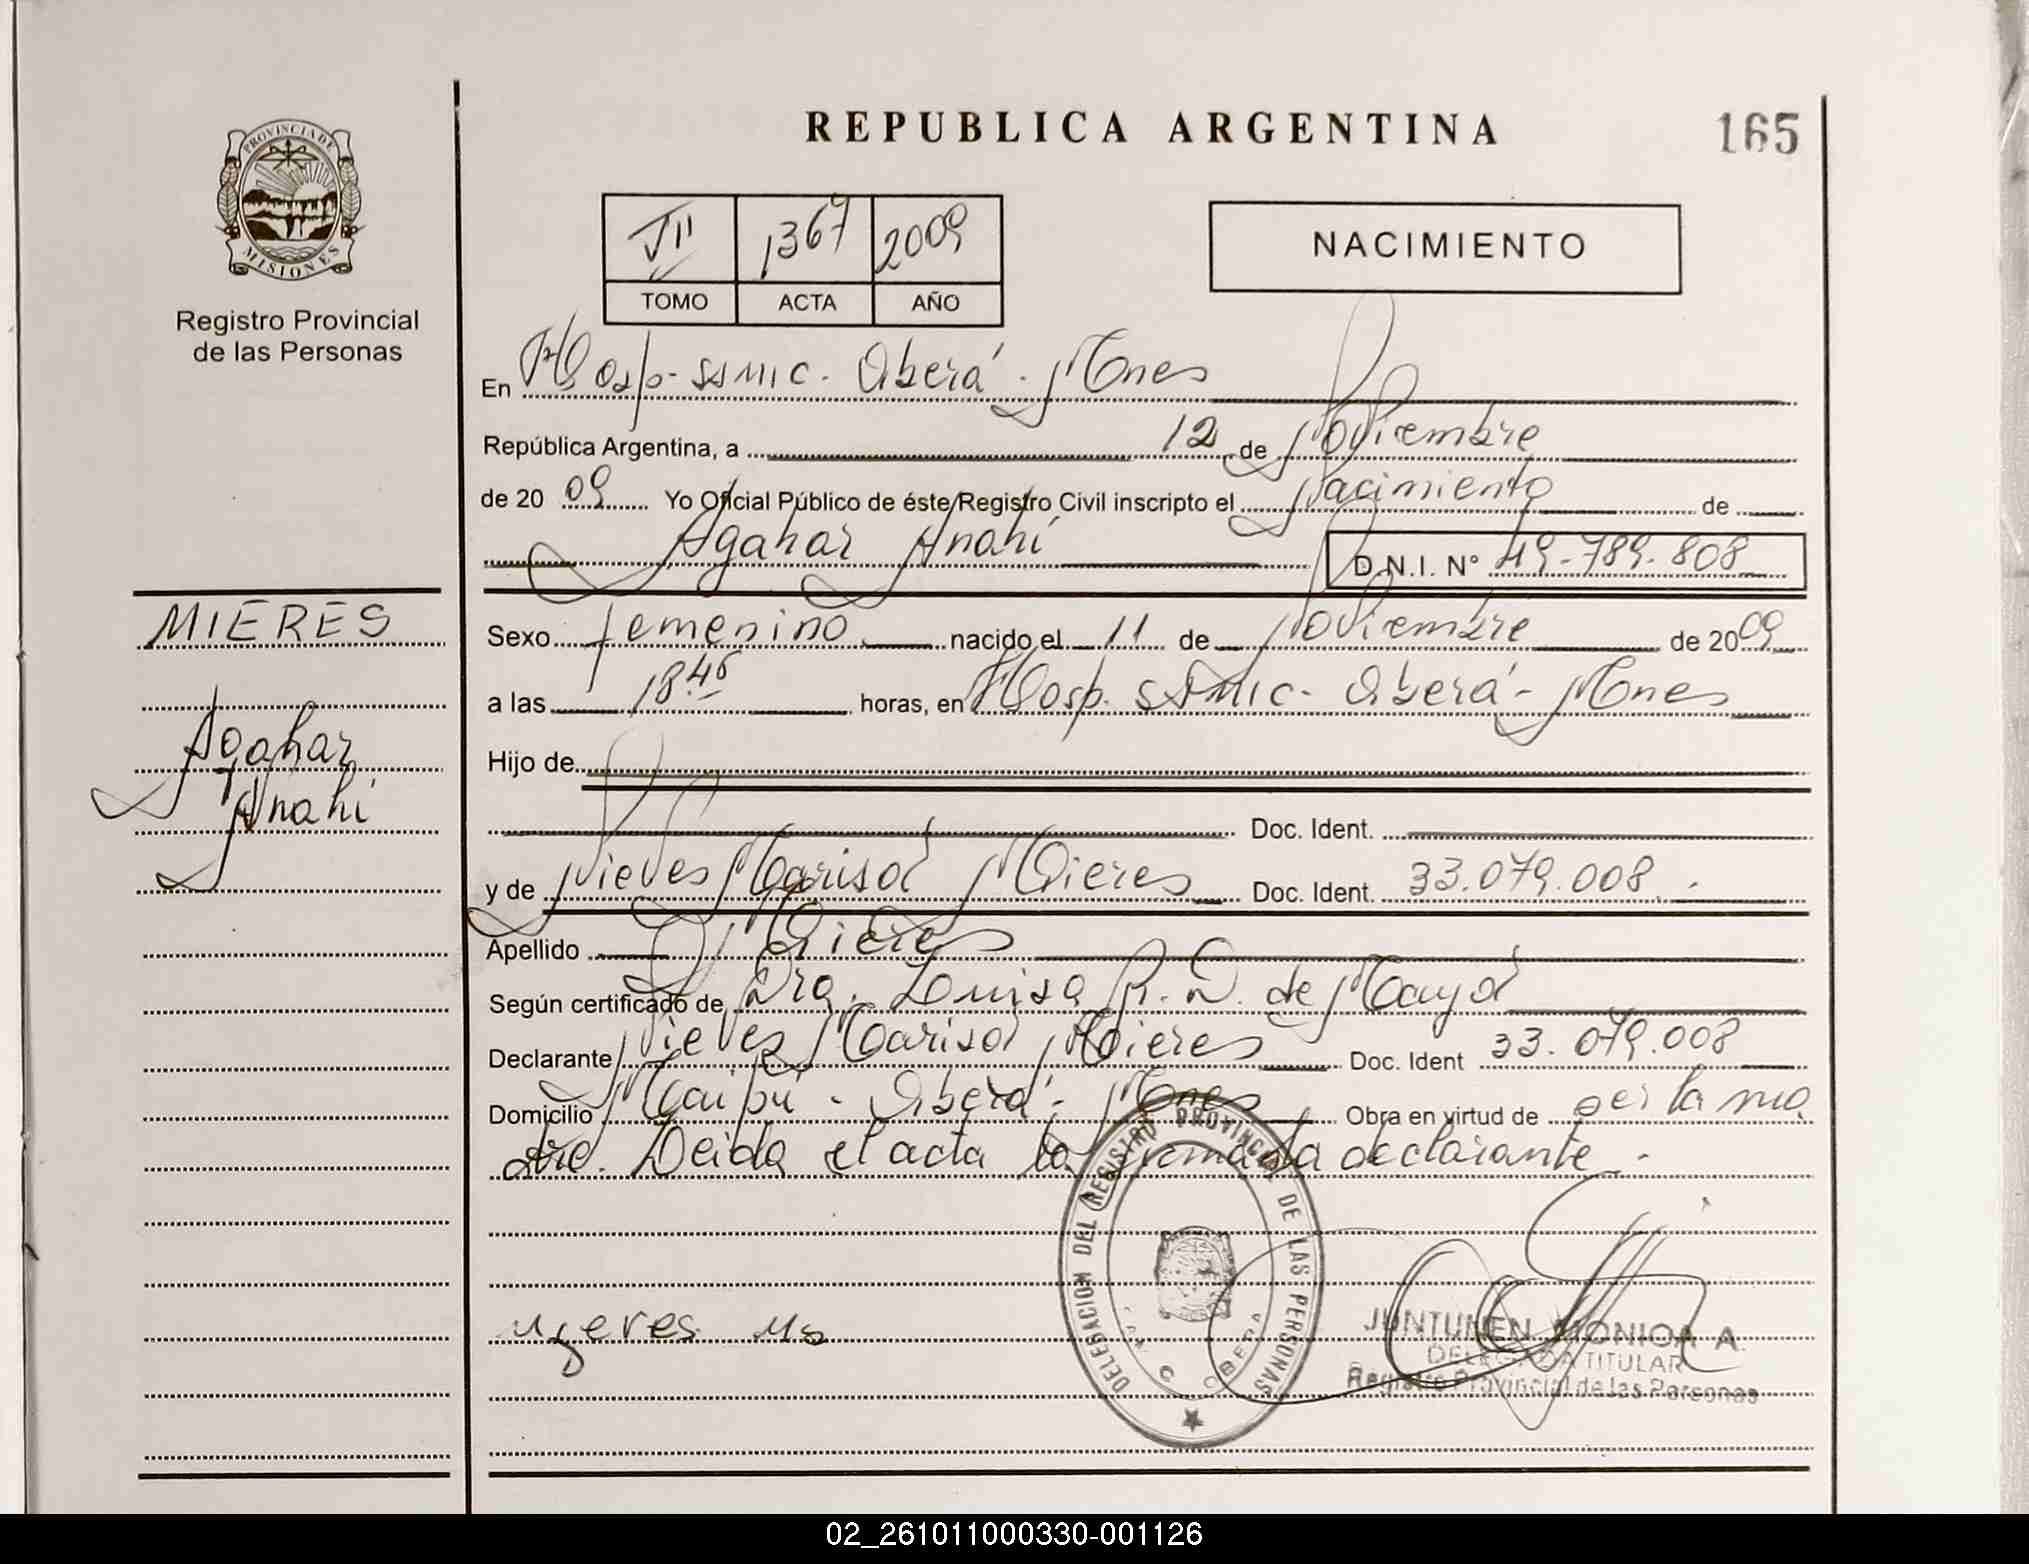 REPUBLICA ARGENTINA
165
PROVINCIA DE
MISIONES
Registro Provincial
de las Personas
1367 2009
TOMO ACTA AÑO
NACIMIENTO
En Hosp. SAMIC. Oberá. Mnes
República Argentina, a 12 de Noviembre
de 20 09 Yo Oficial Público de éste Registro Civil inscripto el Nacimiento de
Agahar Anahí
D.N.I. Nº 49.789.808
MIERES
Agahar
Anahí
Sexo femenino nacido el 11 de Noviembre de 2009
a las 18.46 horas, en Hosp. SAMIC. Oberá - Mnes
Hijo de
Doc. Ident.
y de Nieves Marisol Mieres Doc. Ident. 33.079.008.-
Apellido Mieres
Según certificado de Dra. Luisa R. D. de Mayol
Declarante Nieves Marisol Mieres Doc. Ident 33.079.008
Domicilio Maipú - Oberá - Mnes Obra en virtud de ser la ma
dre. Leida el acta la firma la declarante.-
DELEGACION DEL REGISTRO PROVINCIAL DE LAS PERSONAS
OBERA
JUNTUNEN MONICA A.
DELEGADA TITULAR
Registro Provincial de las Personas
02_261011000330-001126